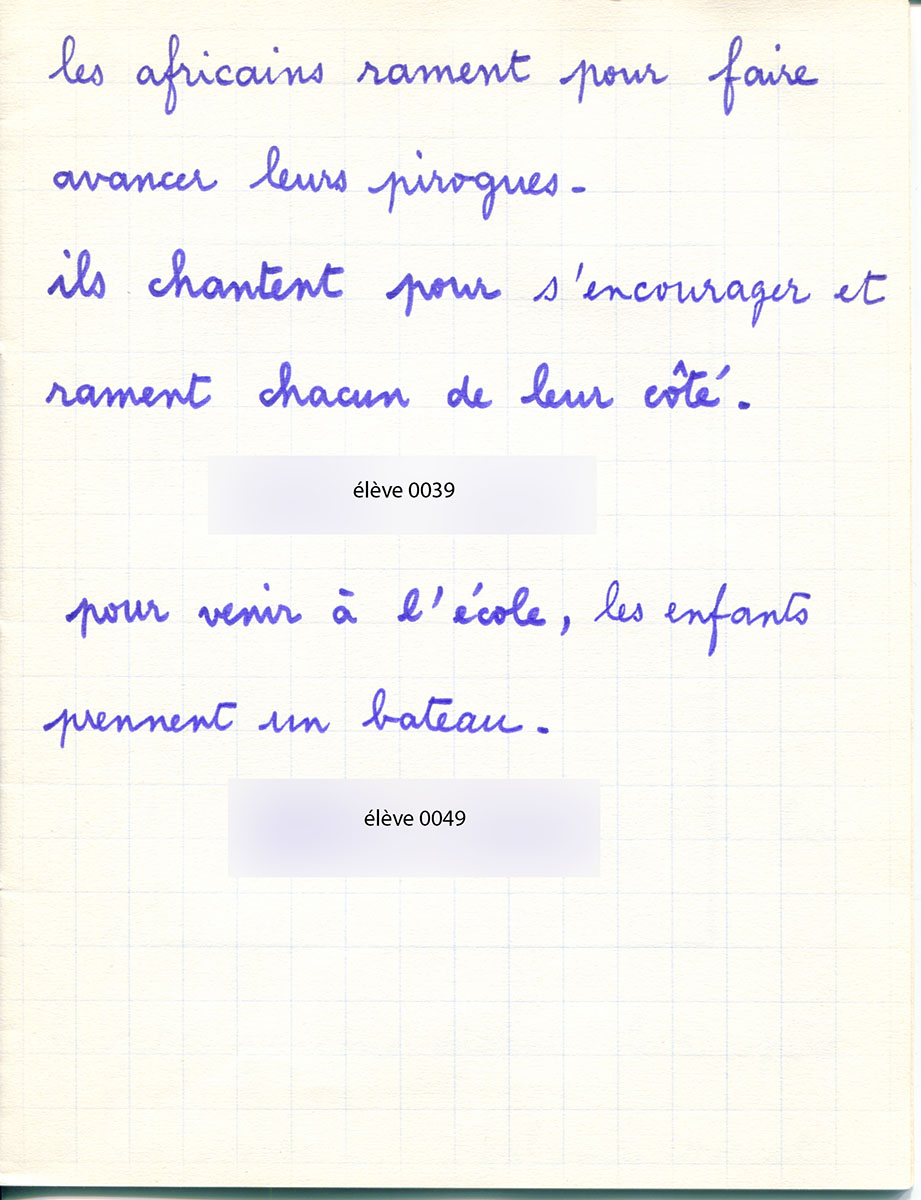 les africains rament pour faire
avancer leurs pirogues.
ils chantent pour s'encourager et
rament chacun de leur côté.
élève 0039
pour venir à l'école, les enfants
prennent un bateau.
élève 0049